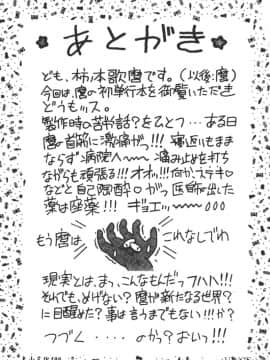 あとがき
ども、柿ノ本歌麿です。(以後、麿)
今回は、麿の初単行本を御覧いただき
どうもッス。
製作時の苦労話?をひとつ…ある日
麿の首筋に激痛がっ!!! 寝返りもまま
ならず病院へ〜〜 痛み止めを打ち
ながらも頑張る!!!オオッ!!!何か、ステキ♡
などと自己陶酔♡がっ医師が出した
薬は座薬!!! ギョエッ〜〜〜
もう麿は
これなしでわ
現実とは、まっ、こんなもんだっフハハ!!!
それでも、めげない?麿が新たなる世界?
に目醒めた?事は言うまでもない!!!か?
つづく・・・・のか?おいっ!!!